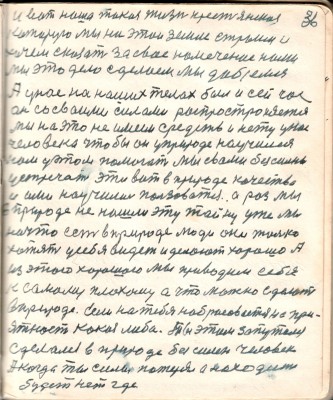 36
и вот наша такая жизнь крестьянская
которую мы на этой земле строим и
хочем сказать за свое намечение нами
мы это дело сделаем мы добьемся
А у нас на наших телах был и сей час
он со своими силами распространяется
мы на это не имеем средств и нету у нас
человека чтобы он у природе научился
нам у этом помогать мы с вами бессильны
устречать эти вот в природе качества
и ими научились пользоватся. а раз мы
в природе не нашли эту тайну уже мы
на что есть в природе люди они только
хотят у себя видеть и делают хорошо А
из этого хорошего мы приводим себя
к самому плохому а что можно сделать
в природе. Если на тебя набросается не при-
ятность кокоя либа. Ты этим запутался
сделался в природе бессилен человек
А когда ты силы потерял а находить
будет нет где